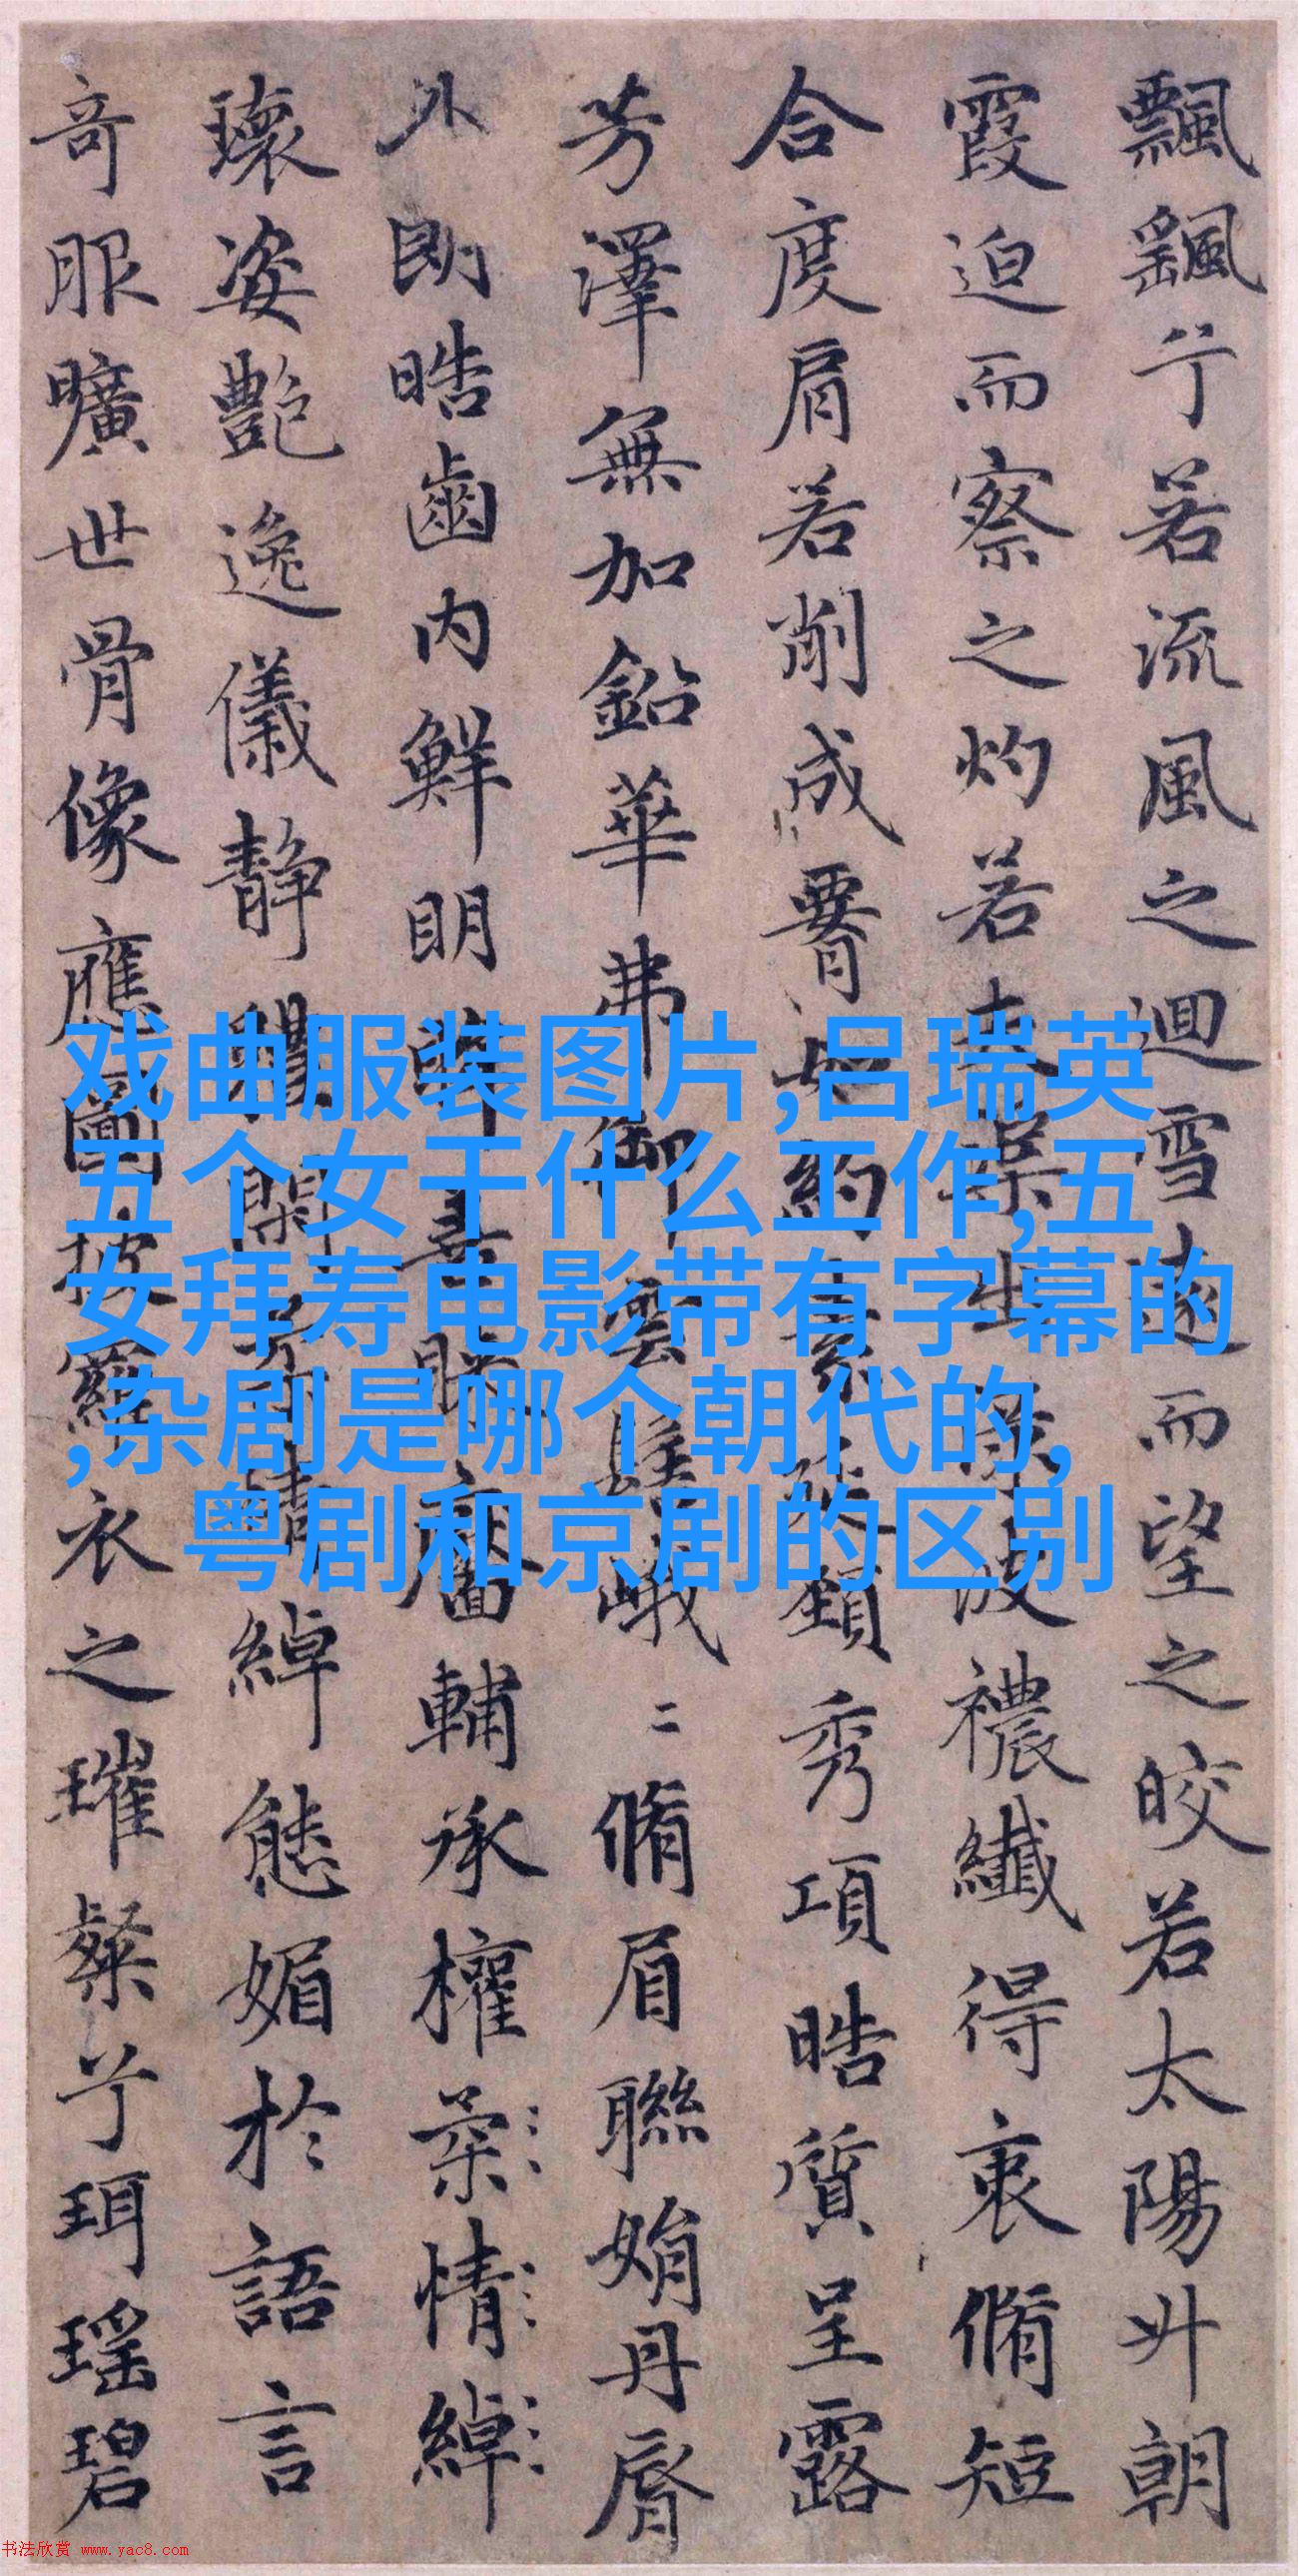 飄颻兮若流風之迴雪遠而望之皎若太陽升朝
霞迫而察之灼若夫蕖出渌波襛纖得衷脩短
合度肩若削成如約素延頸秀項皓質呈露
芳澤無加鉛華弗御雲髻峨二脩眉聯娟丹脣
外朗皓齒内鮮明眸善睞靨輔承權柔情綽
瓌姿艶逸儀静體閑柔情綽態媚於語言
奇服曠世骨像應圖披羅衣之璀粲兮珥瑶碧
戏曲服装图片,吕瑞英
五个女干什么工作,五
女拜寿电影带有字幕的
,杂剧是哪个朝代的,
粤剧和京剧的区别
书法欣赏 www.yac8.com